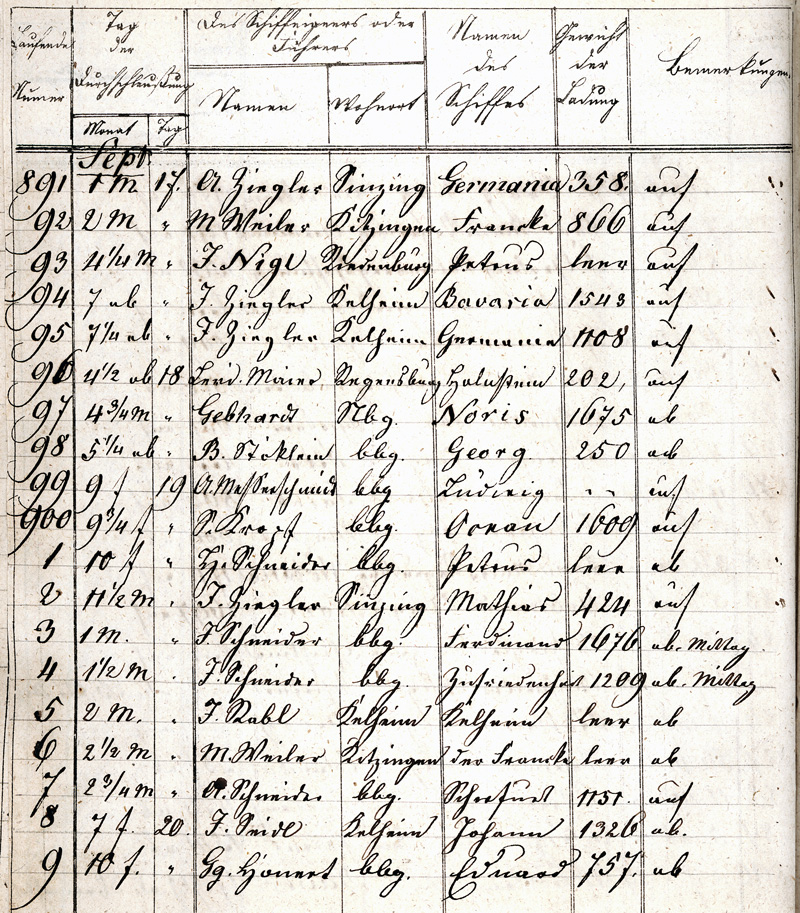 Laufende Numer
Tag der Durchschleußung
Des Schiffeigners oder Führers
Namen des Schiffes
Gewicht der Ladung
Bemerkungen
Monat Tag Namen Wohnort
Sept.
891 1 M 17. A. Ziegler Sinzing Germania 358. auf
92 2 M " M Weiler Kitzingen Francke 866 auf
93 4 1/4 M " J. Nigl Riedenburg Petrus leer auf
94 7 ab " J. Ziegler Kelheim Bavaria 1543 auf
95 7 1/4 ab " J. Ziegler Kelheim Germania 1108 auf
96 4 1/2 ab 18 Maier Regensburg 202, auf
97 4 3/4 M " Gebhardt Nbg. Noris 1675 ab
98 5 1/4 ab " B. Stöklein bbg. Georg 250 ab
99 9 f 19 A. Messerschmidt bbg Ludwig - - auf
900 9 3/4 f " S. Kropf bbg. Ocean 1609 auf
1 10 f " H. Schneider bbg. Petrus leer ab
2 11 1/2 M " J. Ziegler Sinzing Mathias 424 auf
3 1 M. " J Schneider bbg. Ferdinand 1676 ab. Mittag
4 1 1/2 M " J. Schneider bbg. Zufriedenheit 1209 ab. Mittag
5 2 M. " J. Rabl Kelheim Kelheim leer ab
6 2 1/2 M " M. Weiler Kitzingen der Francke leer ab
7 2 3/4 M " A. Schneider bbg. 1151. auf
8 7 f. 20. J. Seidl Kelheim Johann 1326 ab.
9 10 f. " Gg. bbg. Eduard 757. ab